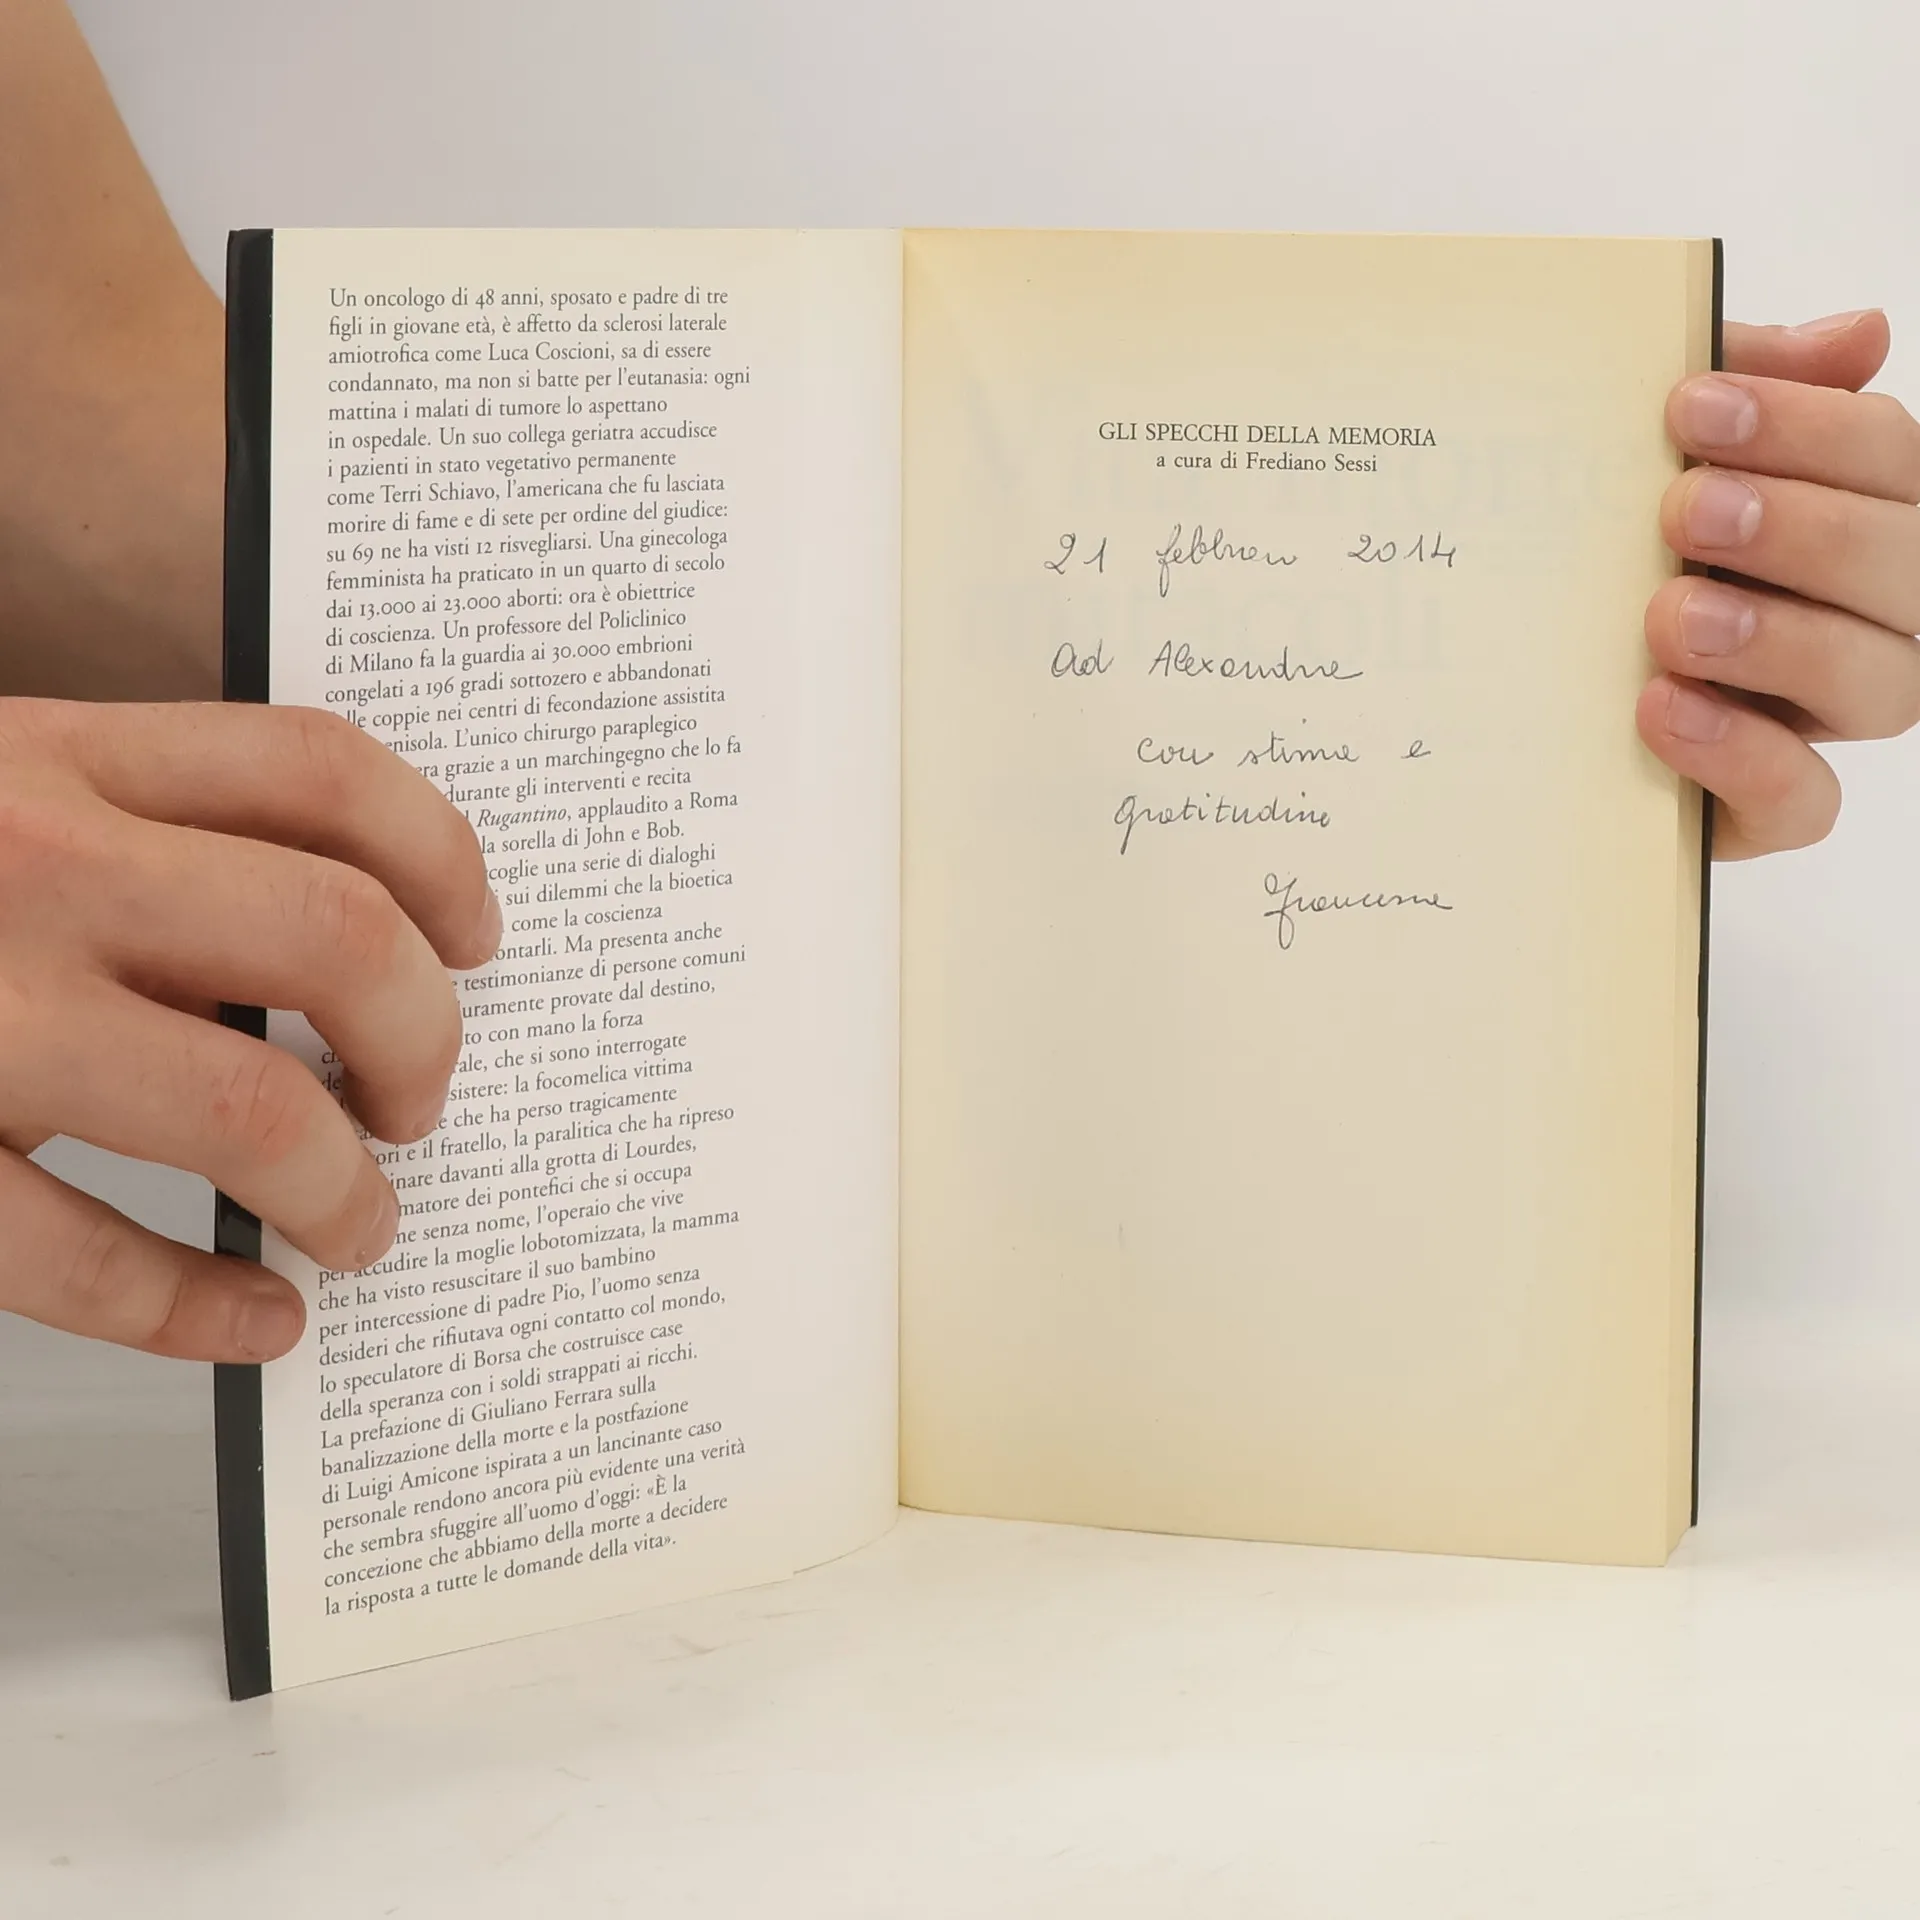 Un oncologo di 48 anni, sposato e padre di tre
figli in giovane età, è affetto da sclerosi laterale
amiotrofica come Luca Coscioni, sa di essere
condannato, ma non si batte per l'eutanasia: ogni
mattina i malati di tumore lo aspettano
in ospedale. Un suo collega geriatra accudisce
i pazienti in stato vegetativo permanente
come Terri Schiavo, l'americana che fu lasciata
morire di fame e di sete per ordine del giudice:
su 69 ne ha visti 12 risvegliarsi. Una ginecologa
femminista ha praticato in un quarto di secolo
dai 13.000 ai 23.000 aborti: ora è obiettrice
di coscienza. Un professore del Policlinico
di Milano fa la guardia ai 30.000 embrioni
congelati a 196 gradi sottozero e abbandonati
coppie nei centri di fecondazione assistita
L'unico chirurgo paraplegico
grazie a un marchingegno che lo fa
durante gli interventi e recita
Rugantino, applaudito a Roma
la sorella di John e Bob.
una serie di dialoghi
sui dilemmi che la bioetica
come la coscienza
Ma presenta anche
testimonianze di persone comuni
provate dal destino,
con mano la forza
che si sono interrogate
la focomelica vittima
che ha perso tragicamente
e il fratello, la paralitica che ha ripreso
davanti alla grotta di Lourdes,
dei pontefici che si occupa
senza nome, l'operaio che vive
per accudire la moglie lobotomizzata, la mamma
che ha visto resuscitare il suo bambino
per intercessione di padre Pio, l'uomo senza
desideri che rifiutava ogni contatto col mondo,
lo speculatore di Borsa che costruisce case
della speranza con i soldi strappati ai ricchi.
La prefazione di Giuliano Ferrara sulla
banalizzazione della morte e la postfazione
di Luigi Amicone ispirata a un lancinante caso
personale rendono ancora più evidente una verità
che sembra sfuggire all'uomo d'oggi: «È la
concezione che abbiamo della morte a decidere
la risposta a tutte le domande della vita».
GLI SPECCHI DELLA MEMORIA
a cura di Frediano Sessi
21 febbraio 2014
ad Alexandre
con stima e
gratitudine